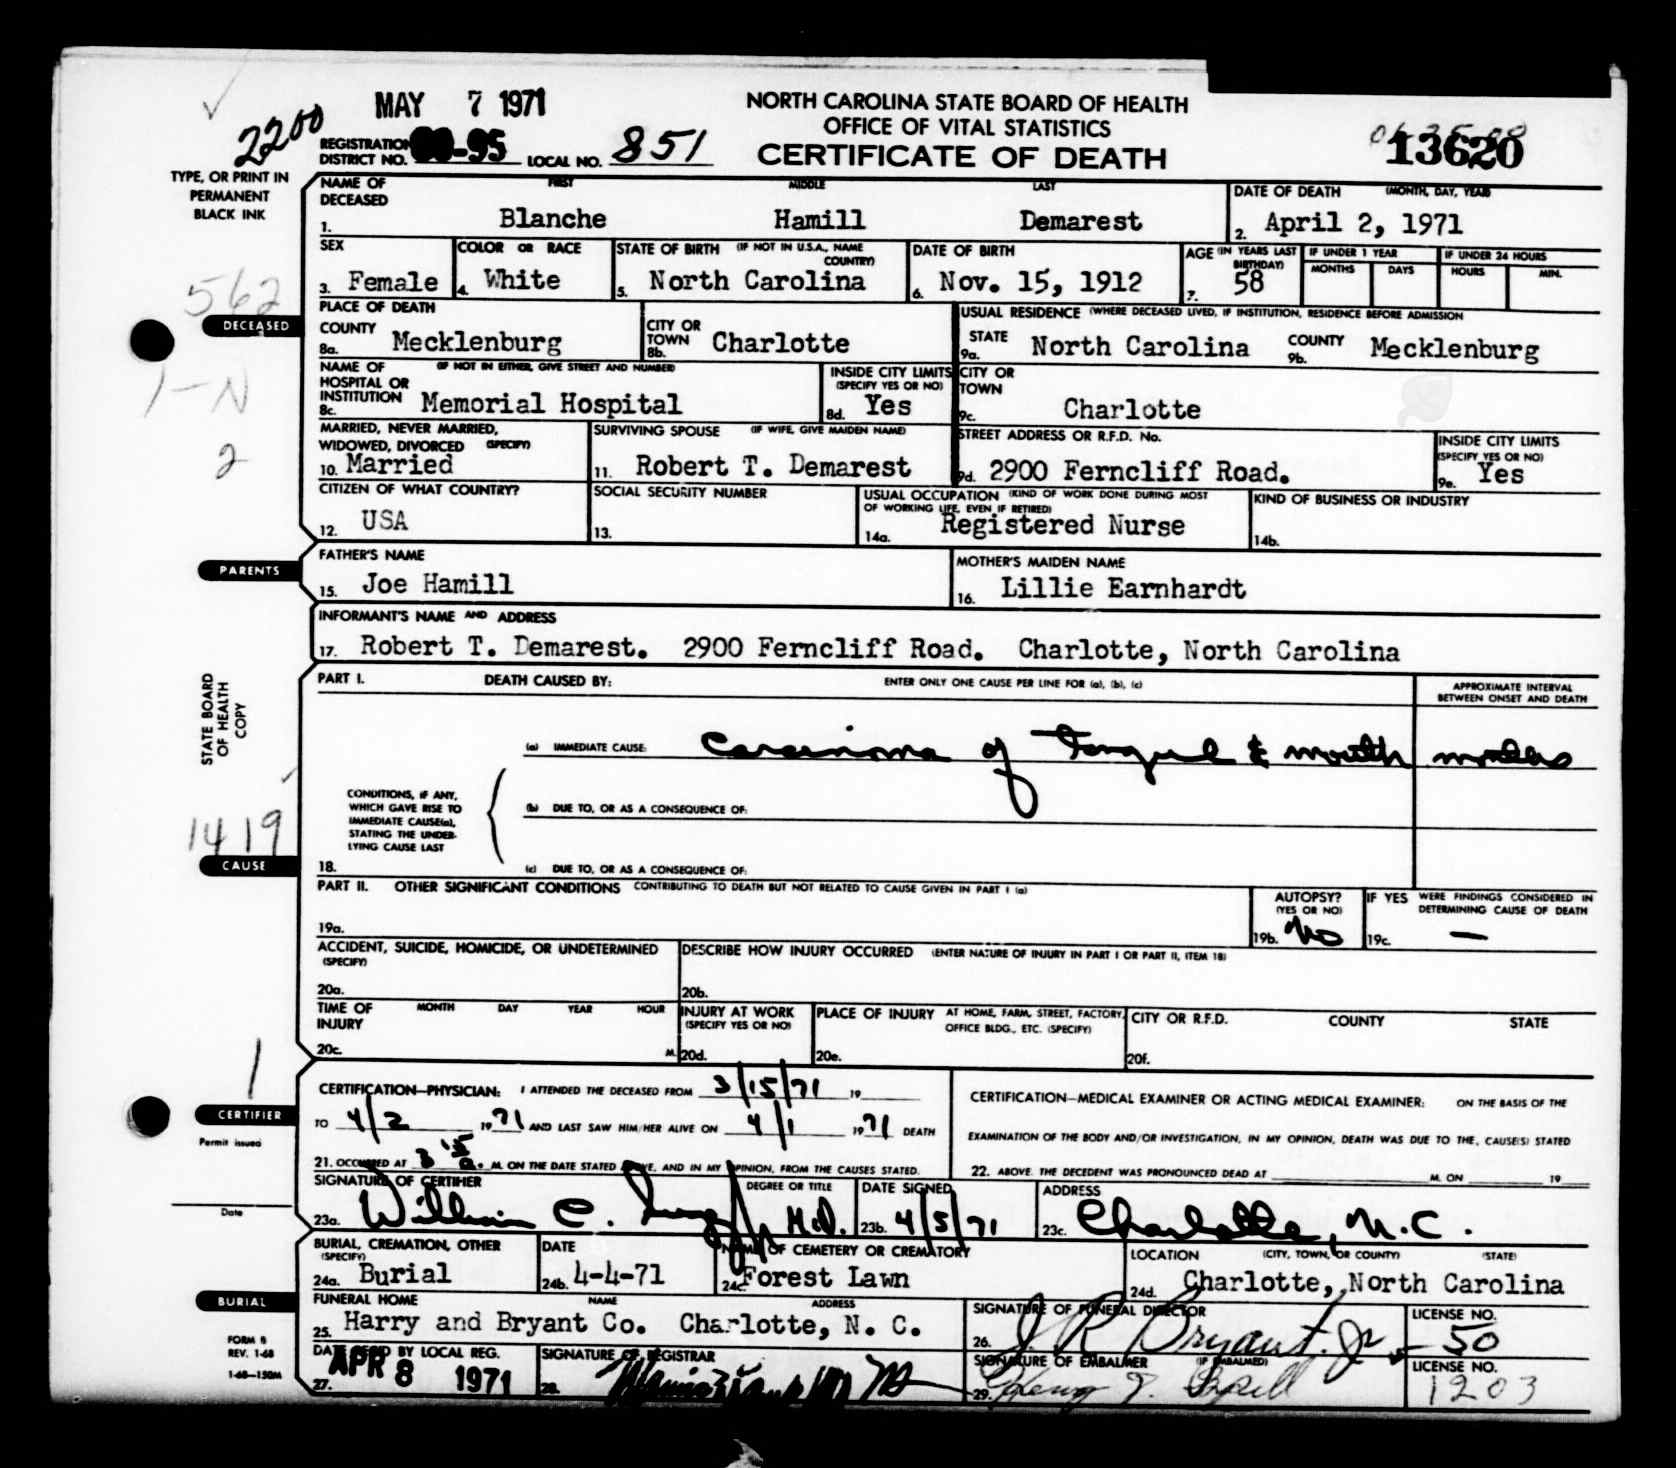 MAY 7 1971
2200
NORTH CAROLINA STATE BOARD OF HEALTH
OFFICE OF VITAL STATISTICS
CERTIFICATE OF DEATH
REGISTRATION DISTRICT NO. -95 LOCAL NO. 851
13620
TYPE, OR PRINT IN
PERMANENT
BLACK INK
NAME OF DECEASED FIRST MIDDLE LAST
1. Blanche Hamill Demarest
DATE OF DEATH (MONTH, DAY, YEAR)
2. April 2, 1971
SEX
3. Female
COLOR OR RACE
4. White
STATE OF BIRTH (IF NOT IN U.S.A., NAME COUNTRY)
5. North Carolina
DATE OF BIRTH
6. Nov. 15, 1912
AGE (IN YEARS LAST BIRTHDAY)
7. 58
IF UNDER 1 YEAR
MONTHS DAYS
IF UNDER 24 HOURS
HOURS MIN.
562
DECEASED
1-N
2
PLACE OF DEATH
COUNTY
8a. Mecklenburg
CITY OR TOWN
8b. Charlotte
USUAL RESIDENCE (WHERE DECEASED LIVED, IF INSTITUTION, RESIDENCE BEFORE ADMISSION
STATE
9a. North Carolina
COUNTY
9b. Mecklenburg
NAME OF HOSPITAL OR INSTITUTION (IF NOT IN EITHER, GIVE STREET AND NUMBER)
8c. Memorial Hospital
INSIDE CITY LIMITS (SPECIFY YES OR NO)
8d. Yes
CITY OR TOWN
9c. Charlotte
MARRIED, NEVER MARRIED,
WIDOWED, DIVORCED (SPECIFY)
10. Married
SURVIVING SPOUSE (IF WIFE, GIVE MAIDEN NAME)
11. Robert T. Demarest
STREET ADDRESS OR R.F.D. No.
9d. 2900 Ferncliff Road.
INSIDE CITY LIMITS
(SPECIFY YES OR NO)
9e. Yes
CITIZEN OF WHAT COUNTRY?
12. USA
SOCIAL SECURITY NUMBER
13.
USUAL OCCUPATION (KIND OF WORK DONE DURING MOST
OF WORKING LIFE, EVEN IF RETIRED)
14a. Registered Nurse
KIND OF BUSINESS OR INDUSTRY
14b.
PARENTS
FATHER'S NAME
15. Joe Hamill
MOTHER'S MAIDEN NAME
16. Lillie Earnhardt
INFORMANT'S NAME AND ADDRESS
17. Robert T. Demarest. 2900 Ferncliff Road. Charlotte, North Carolina
STATE BOARD
OF HEALTH
COPY
PART I. DEATH CAUSED BY: ENTER ONLY ONE CAUSE PER LINE FOR (a), (b), (c)
APPROXIMATE INTERVAL
BETWEEN ONSET AND DEATH
(a) IMMEDIATE CAUSE: Carcinoma of Tongue & mouth months
CONDITIONS, IF ANY,
WHICH GAVE RISE TO
IMMEDIATE CAUSE(a),
STATING THE UNDER-
LYING CAUSE LAST
(b) DUE TO, OR AS A CONSEQUENCE OF:
1419
CAUSE
18. (c) DUE TO, OR AS A CONSEQUENCE OF:
PART II. OTHER SIGNIFICANT CONDITIONS CONTRIBUTING TO DEATH BUT NOT RELATED TO CAUSE GIVEN IN PART I (a)
19a.
AUTOPSY?
(YES OR NO)
19b. No
IF YES WERE FINDINGS CONSIDERED IN
DETERMINING CAUSE OF DEATH
19c. —
ACCIDENT, SUICIDE, HOMICIDE, OR UNDETERMINED
(SPECIFY)
20a.
DESCRIBE HOW INJURY OCCURRED (ENTER NATURE OF INJURY IN PART I OR PART II, ITEM 18)
20b.
TIME OF INJURY MONTH DAY YEAR HOUR
20c. M.
INJURY AT WORK
(SPECIFY YES OR NO)
20d.
PLACE OF INJURY AT HOME, FARM, STREET, FACTORY,
OFFICE BLDG., ETC. (SPECIFY)
20e.
CITY OR R.F.D. COUNTY STATE
20f.
1
CERTIFIER
Permit issued
Date
CERTIFICATION—PHYSICIAN: I ATTENDED THE DECEASED FROM 3/15/71 19
TO 4/2 1971 AND LAST SAW HIM/HER ALIVE ON 4/1 1971 DEATH
21. OCCURRED AT 3 15 a. M. ON THE DATE STATED ABOVE, AND IN MY OPINION, FROM THE CAUSES STATED.
CERTIFICATION—MEDICAL EXAMINER OR ACTING MEDICAL EXAMINER: ON THE BASIS OF THE
EXAMINATION OF THE BODY AND/OR INVESTIGATION, IN MY OPINION, DEATH WAS DUE TO THE, CAUSE(S) STATED
22. ABOVE. THE DECEDENT WAS PRONOUNCED DEAD AT M. ON 19
SIGNATURE OF CERTIFIER DEGREE OR TITLE
23a. William C. M.D.
DATE SIGNED
23b. 4/5/71
ADDRESS
23c. Charlotte, N.C.
BURIAL
BURIAL, CREMATION, OTHER
(SPECIFY)
24a. Burial
DATE
24b. 4-4-71
NAME OF CEMETERY OR CREMATORY
24c. Forest Lawn
LOCATION (CITY, TOWN, OR COUNTY) (STATE)
24d. Charlotte, North Carolina
FUNERAL HOME NAME ADDRESS
25. Harry and Bryant Co. Charlotte, N. C.
SIGNATURE OF FUNERAL DIRECTOR
26. J. R. Bryant. Jr
LICENSE NO.
50
FORM 8
REV. 1-68
1-68—150M
DATE REC'D BY LOCAL REG.
27. APR 8 1971
SIGNATURE OF REGISTRAR
28.
SIGNATURE OF EMBALMER (IF EMBALMED)
29.
LICENSE NO.
1203